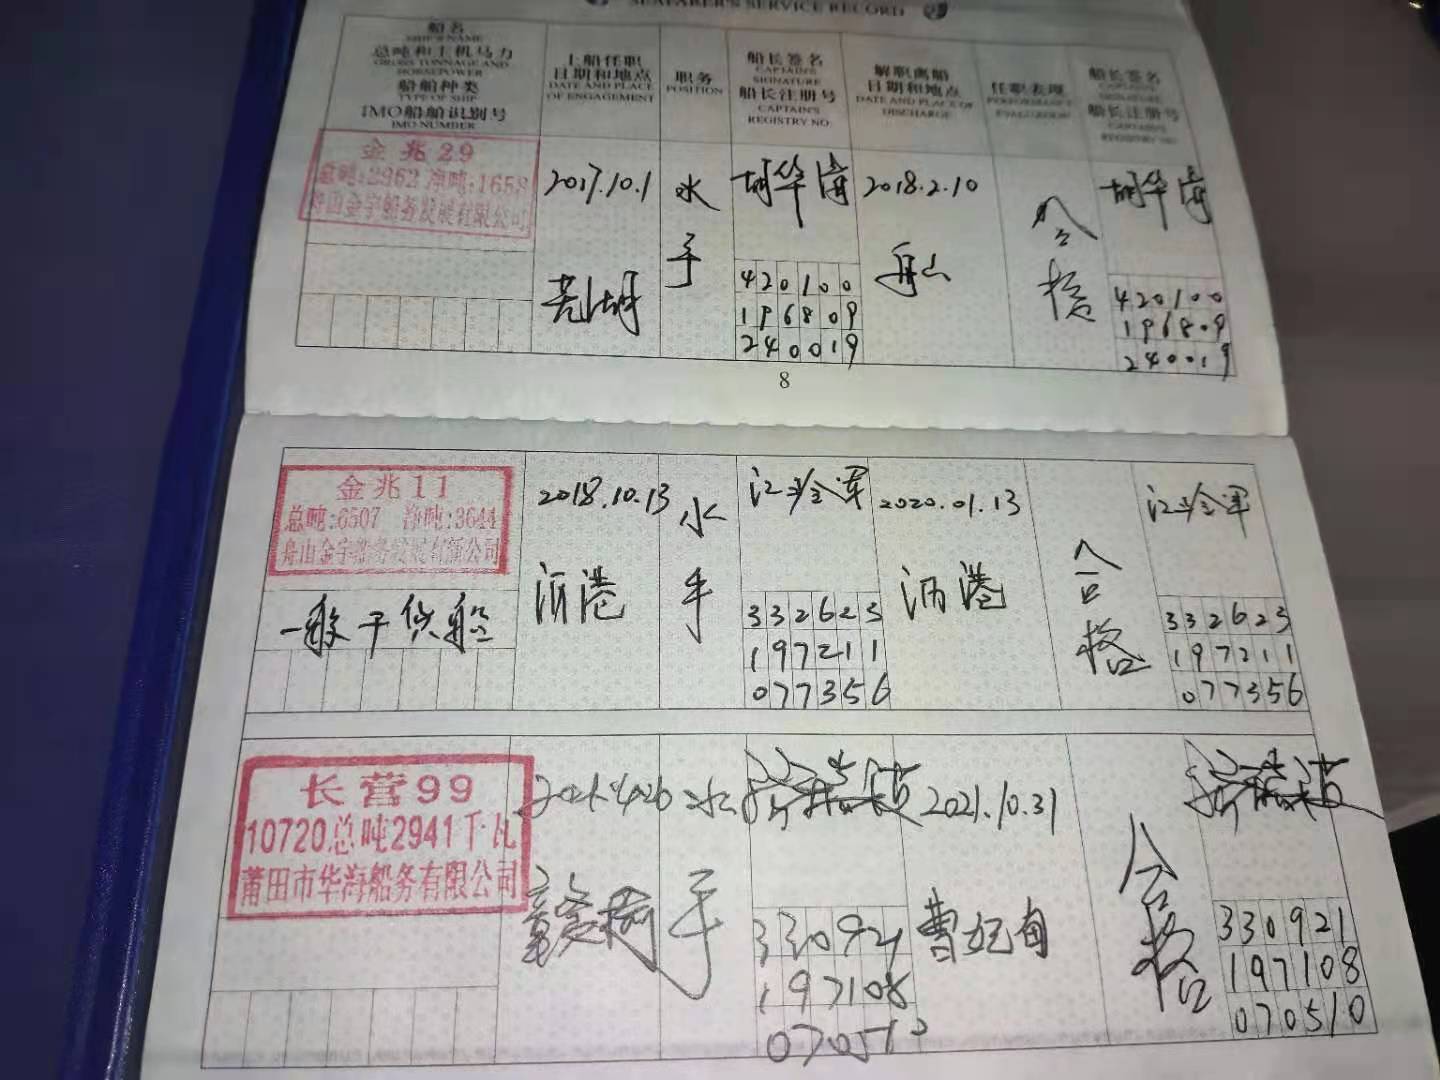 SEAFARER'S SERVICE RECORD
船名
SHIP'S NAME
总吨和主机马力
GROSS TONNAGE AND
HORSEPOWER
船舶种类
TYPE OF SHIP
IMO船舶识别号
IMO NUMBER
上船任职
日期和地点
DATE AND PLACE
OF ENGAGEMENT
职务
POSITION
船长签名
CAPTAIN'S
SIGNATURE
船长注册号
CAPTAIN'S
REGISTRY NO.
解职离船
日期和地点
DATE AND PLACE OF
DISCHARGE
任职表现
PERFORMANCE
EVALUATION
船长签名
CAPTAIN'S
SIGNATURE
船长注册号
CAPTAIN'S
REGISTRY NO.
金兆29
总吨:2962 净吨:1658
舟山金宇船务发展有限公司
2017.10.1
芜湖
水
手
胡华
420100
196809
240019
2018.2.10
舟山
合
格
胡华
420100
196809
240019
8
金兆11
总吨:6507 净吨:3644
舟山金宇船务发展有限公司
一般干货船
2018.10.13
港
水
手
江
332623
197211
077356
2020.01.13
港
合
格
江
332623
197211
077356
长营99
10720总吨2941千瓦
莆田市华海船务有限公司
水
手
330921
197108
070510
2021.10.31
曹妃甸
合
格
330921
197108
070510